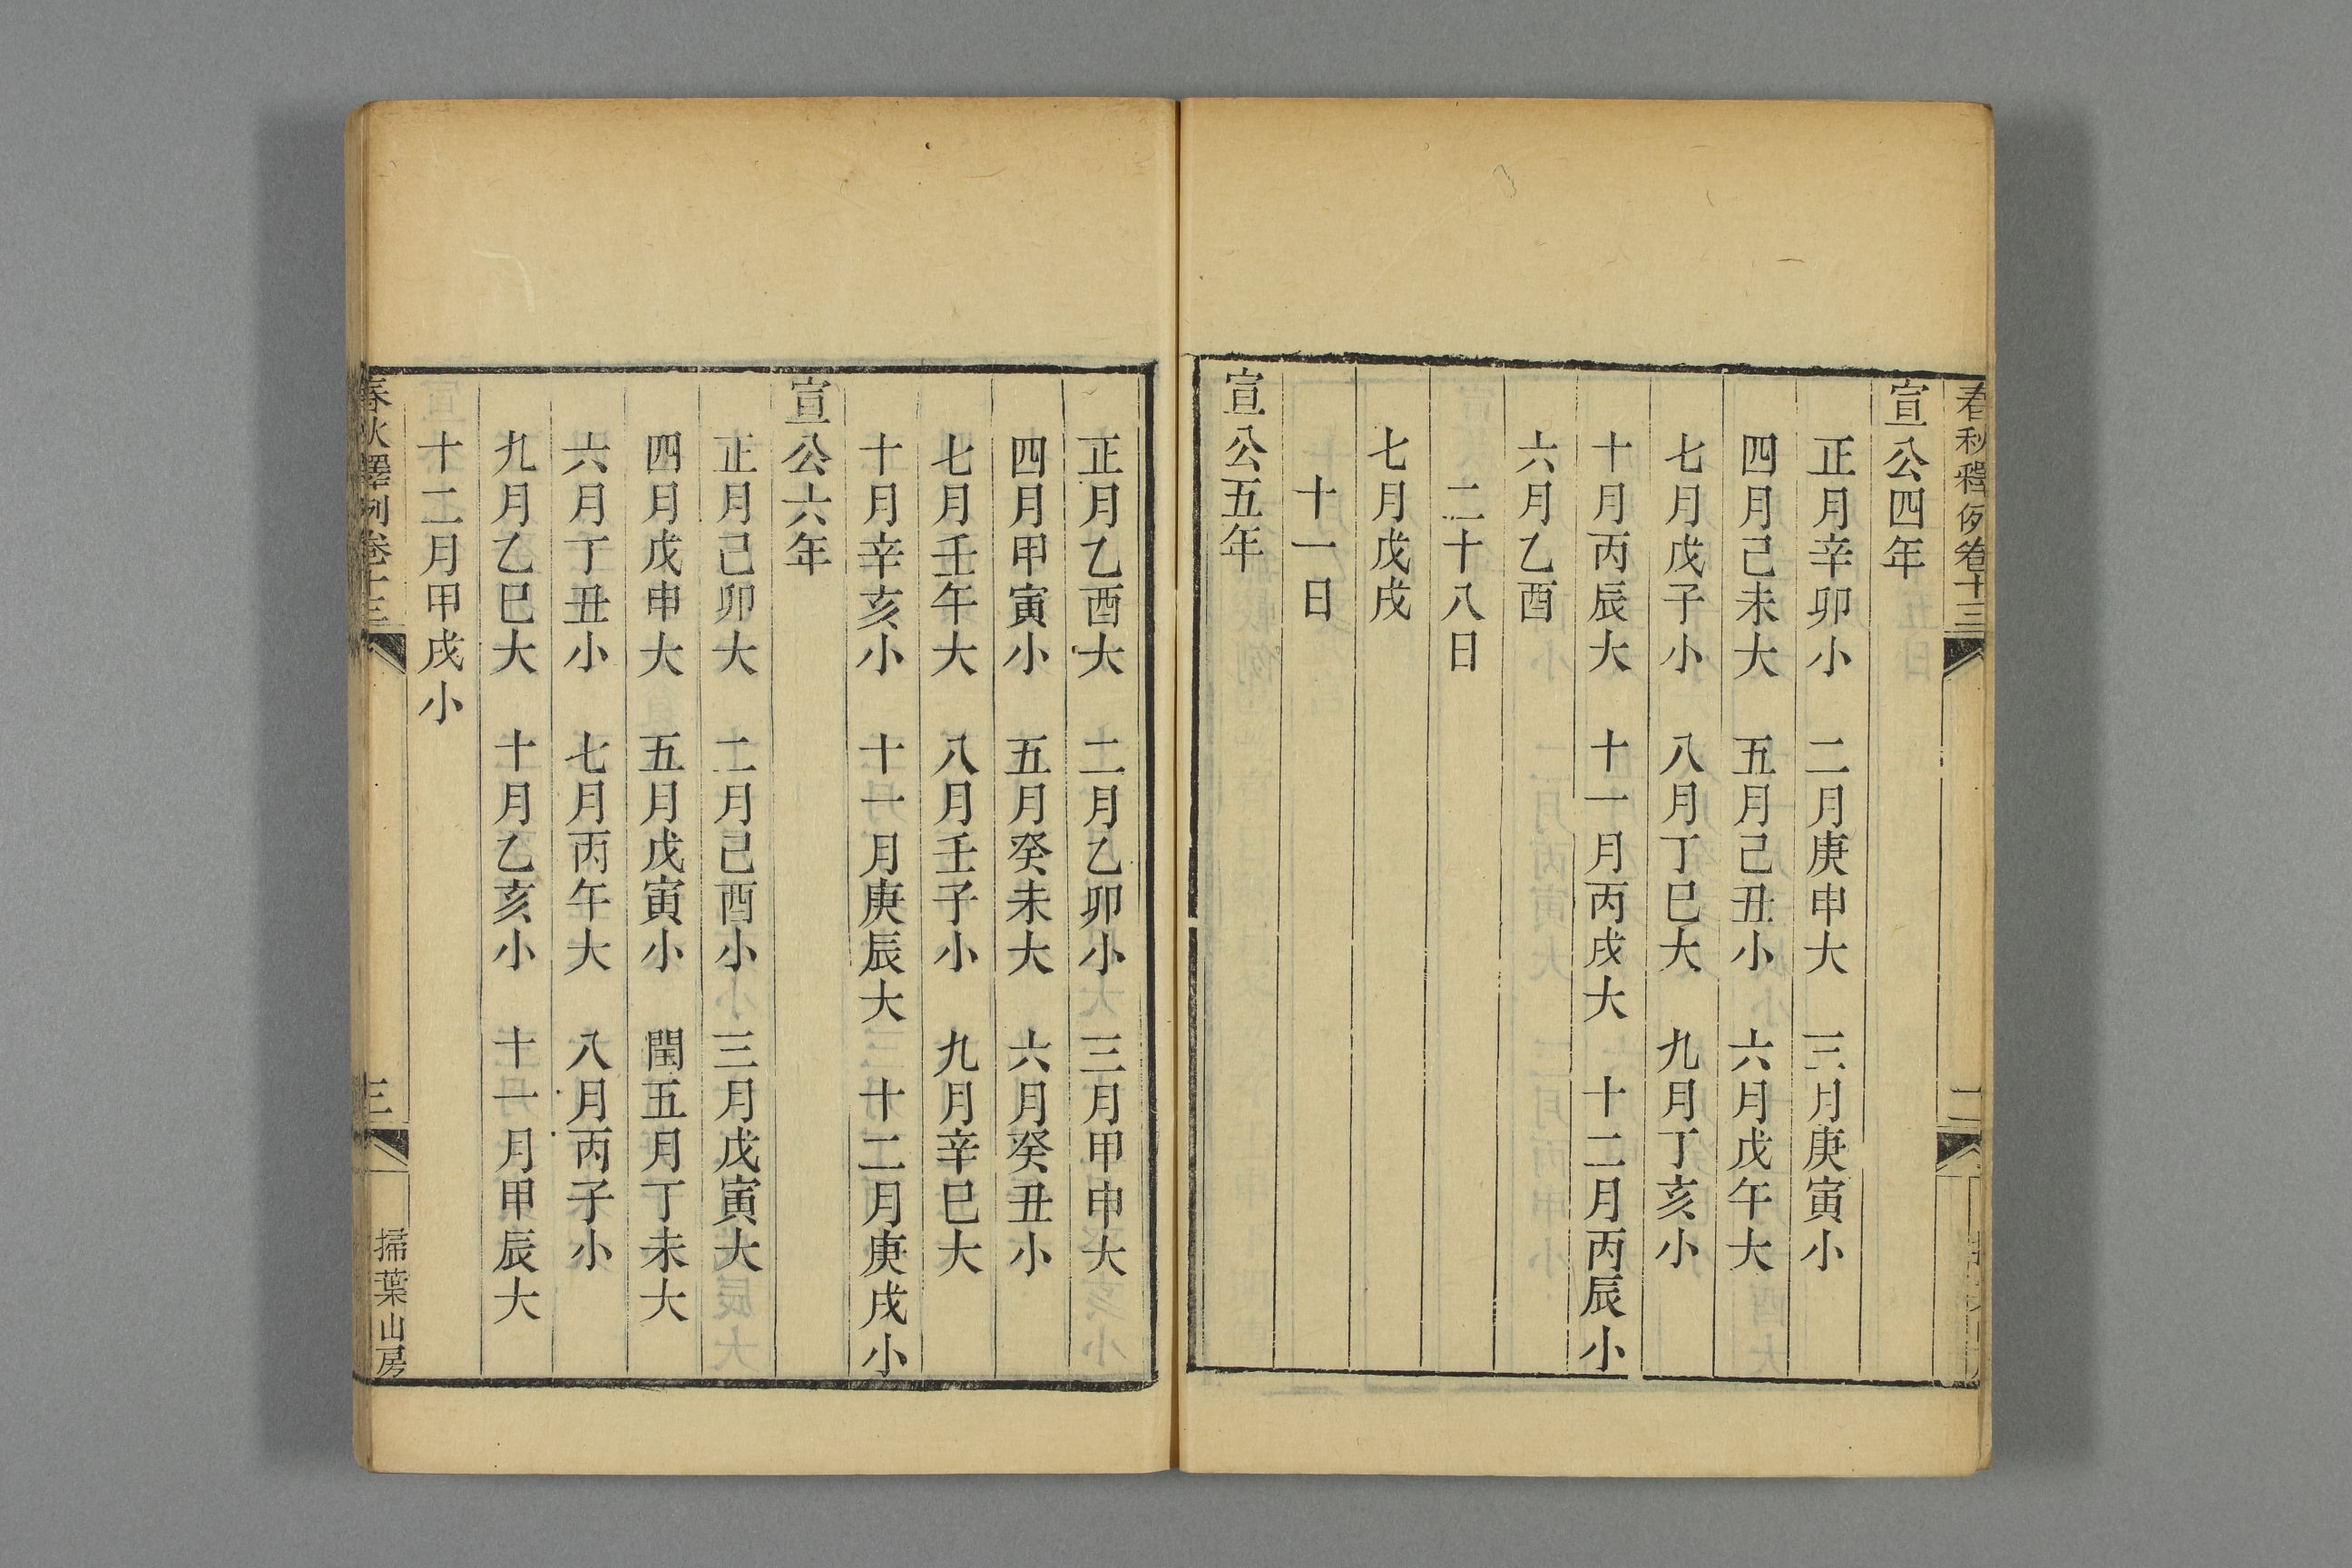 春秋釋例卷十三 二
宣公四年
正月辛卯小 二月庚申大 三月庚寅小
四月己未大 五月己丑小 六月戊午大
七月戊子小 八月丁巳大 九月丁亥小
十月丙辰大 十一月丙戌大 十二月丙辰小
六月乙酉
二十八日
七月戊戌
十一日
宣公五年
正月乙酉大 二月乙卯小 三月甲申大
四月甲寅小 五月癸未大 六月癸丑小
七月壬午大 八月壬子小 九月辛巳大
十月辛亥小 十一月庚辰大 十二月庚戌小
宣公六年
正月己卯大 二月己酉小 三月戊寅大
四月戊申大 五月戊寅小 閏五月丁未大
六月丁丑小 七月丙午大 八月丙子小
九月乙巳大 十月乙亥小 十一月甲辰大
十二月甲戌小
春秋釋例卷十三 三 掃葉山房